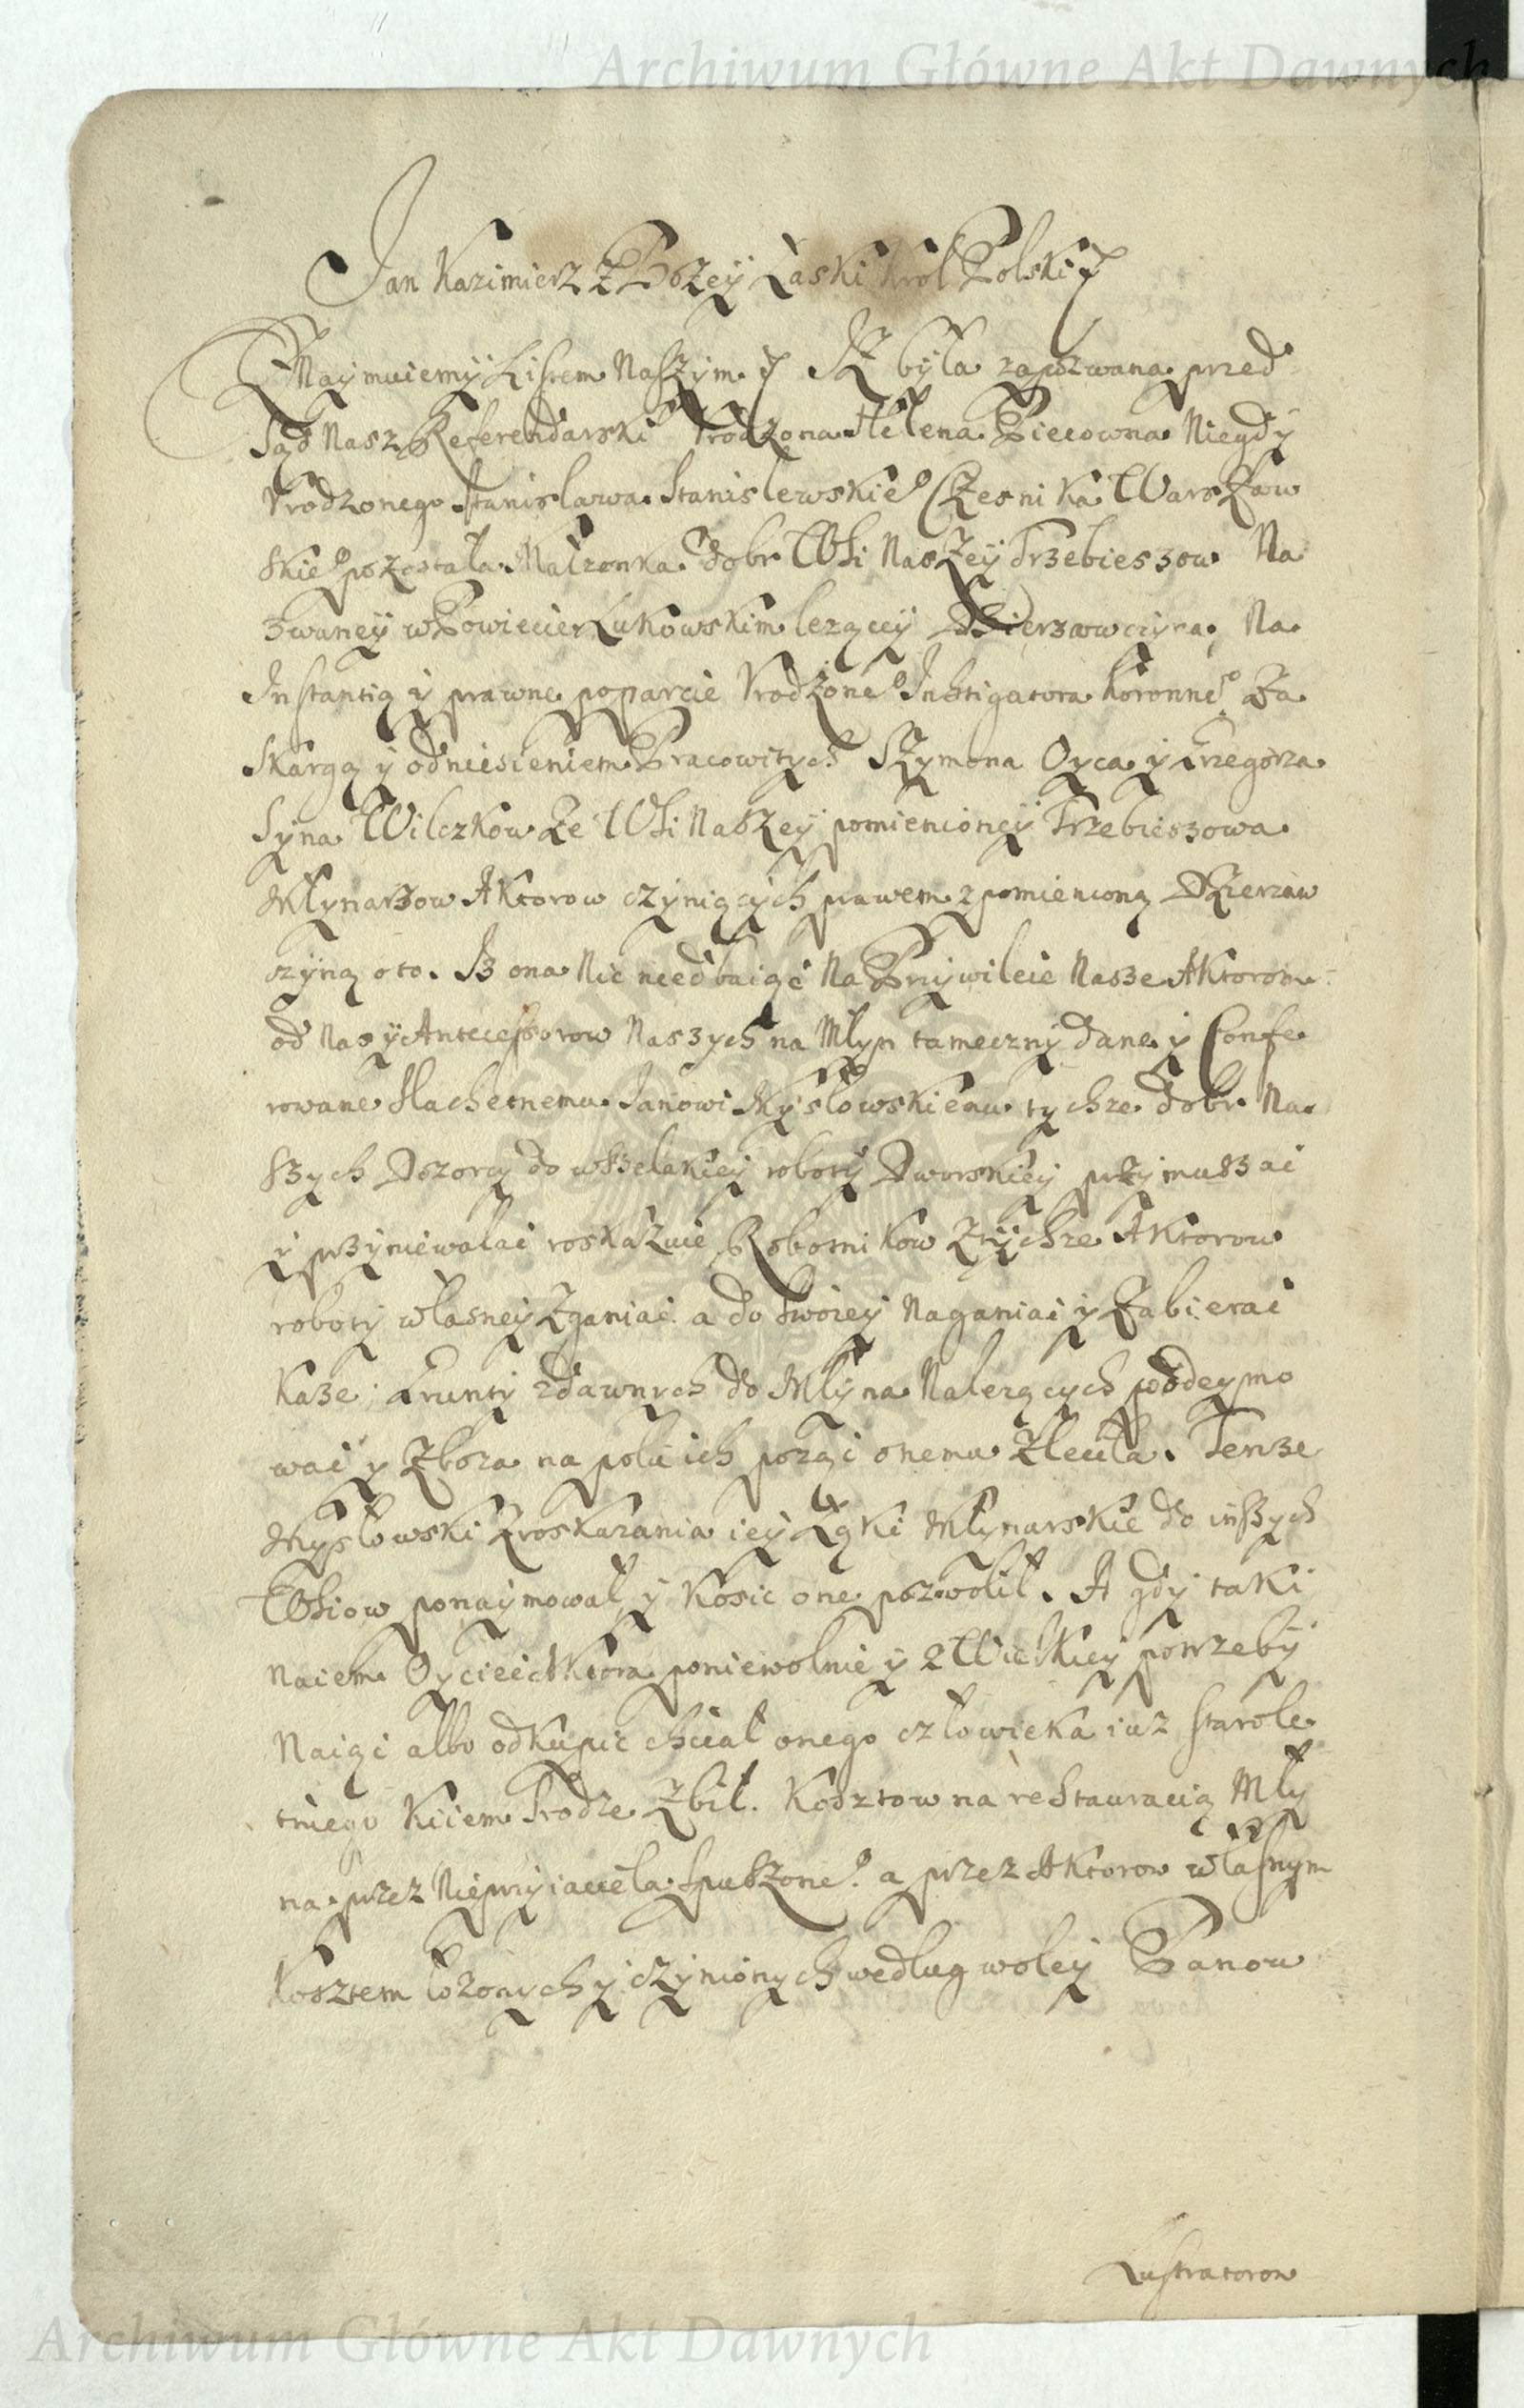 Archiwum Główne Akt Dawnych
Jan Kazimierz z Bozey Łaski Krol Polski
Oznaymuiemy Listem Naszym Jż była zapozwana przed
Sąd Nasz Referendarski Vrodzona Helena Piecowna Niegdy
Vrodzonego Stanisława Stanislewskieo Czesnika Warszaw
skieo pozostała Małzonka dobr Wsi Naszey Trzebieszow Na
zwaney w Powiecie Łukowskim lezącey Dzierzawczyna, Na
Instantią y prawne poparcie Vrodzoneo Instigatora Koronneo Za
Skargą y odniesieniem Pracowitych Szymona Oyca y Grzegorza
Syna Wilczkow Ze Wsi Naszey pomienioney Trzebieszowa
Młynarzow Aktorow czyniących prawem z pomienioną Dzierzaw
czyną oto. Jz ona Nic niedbaiąc Na Przywileie Nasze Aktorom
od Nas y Antecessorow Naszych na Młyn tameczny dane y Confe
rowane Slachetnemu Janowi Mysłowskiemu tychze dobr Na
szych Dozorcy do wszelakiey roboty Dworskiey przymuszac
y przyniewalac roskazuie Robotnikow Ztychze Aktorow
roboty własney Zganiac a do swoiey Naganiac y Zabierac
kaze; Grunty zdawnych do Młyna Nalezących podeymo
wac y Zboza na polu ich poząc onemu Zleciła. Tenze
Mysłowski Zroskazania iey Łąki Młynarskie do inszych
Wsiow ponaymował y kosic one pozwolił. A gdy taki
naiem Oyciec Aktora poniewolnie y z Wielkiey potrzeby
Naiąc albo odkupic chciał onego człowieka iuz starole
tniego kiiem Srodze Zbił. Kosztow na restauracią Mły
na przez Nieprzyiaciela spuszzoneo a przez Aktorow własnym
kosztem łozonych y czynionych według woley Panow
Lustratorow
Archiwum Główne Akt Dawnych